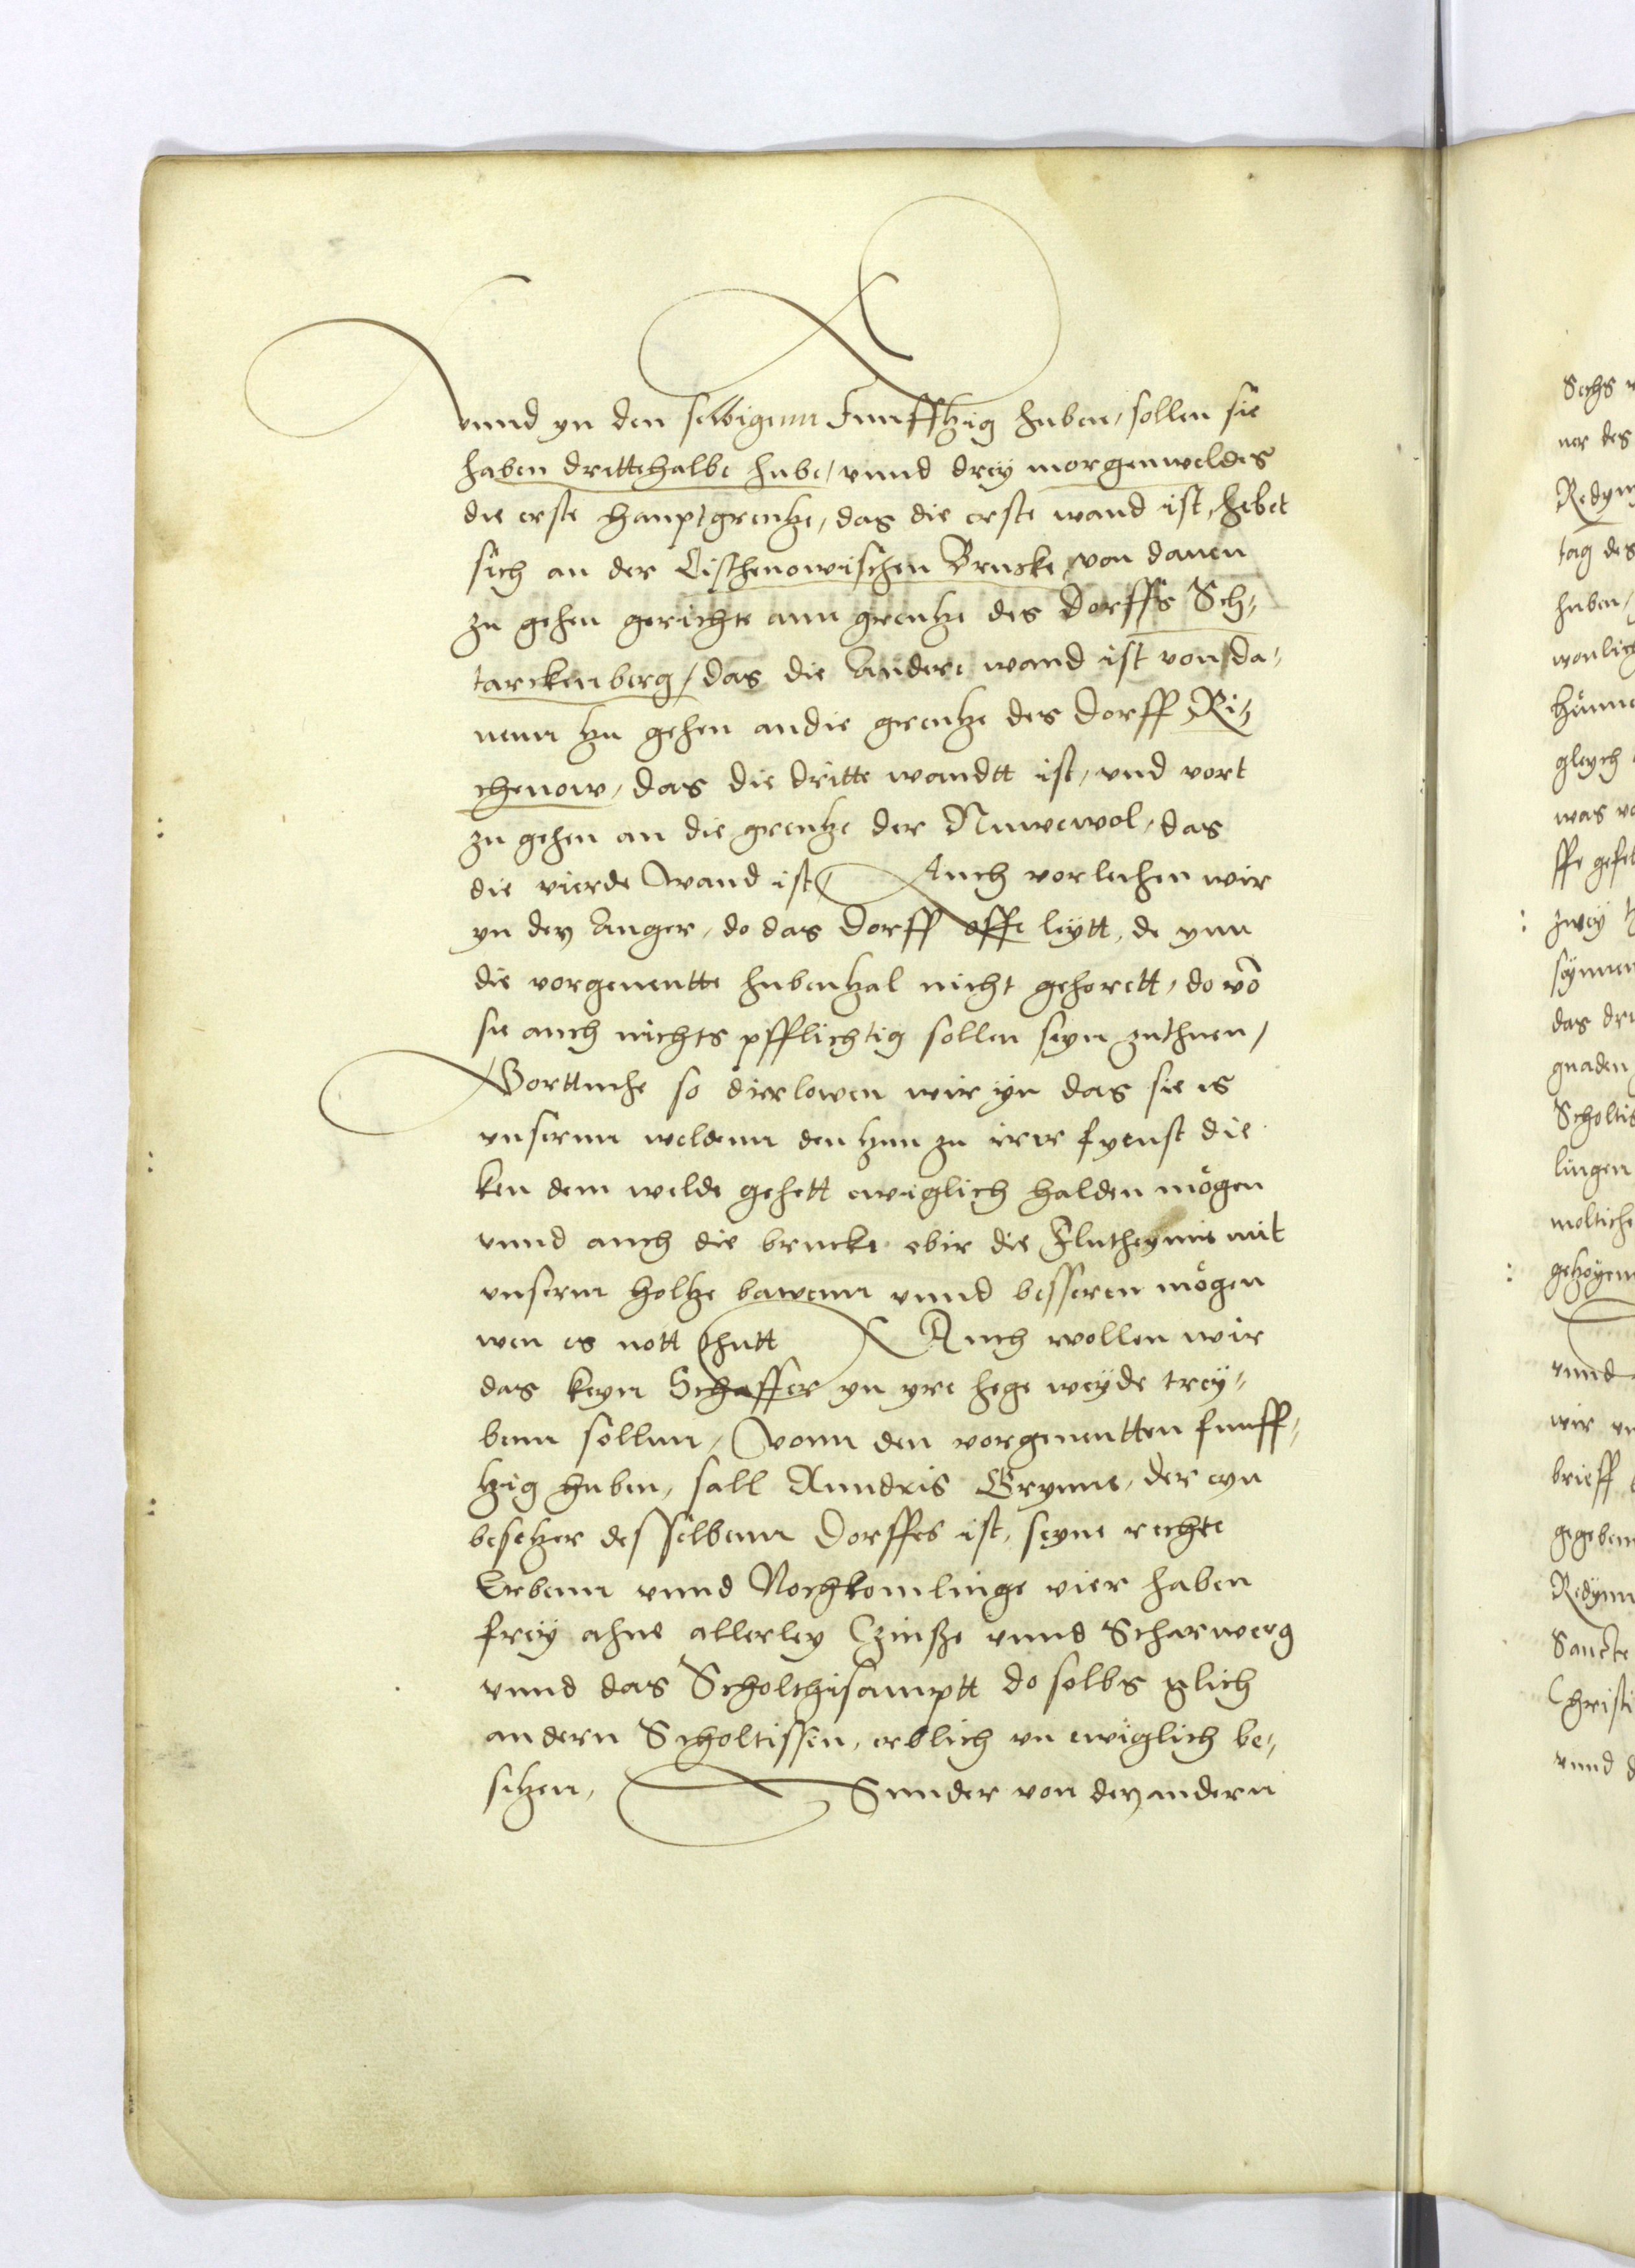 vnnd yn den selbigenn Funfftzig huben, sollen sie
haben drittehalbe hube, vnnd drey morgen weldes
die erste hauptgrentze, das die erste wand ist, hebet
sich an der Lischenowischen Brucke von danen
zu gehen gerichte ann grentze des Dorffs Sch-
tarckenberg, das die Andere wand ist von da-
nenn tzu gehen an die grentze des Dorff Ri-
chenow, das die dritte wandtt ist, vnd vort
zu gehen an die grentze der Nuwewol, das
die vierde Wand ist, Auch vorleihen wir
yn den Anger, do das Dorff offe leytt, de ynn
die vorgenentte hubentzal nicht gehorett, do vō
sie auch nichts pfflichtig sollen seyn zuthuen,
Vorttmehe so dirlowen wir yn das sie es
vnserm weldenn den tzun zu irer die
ken dem welde gehett ewiglich halden mögen
vnnd auch die brucke obir die mit
vnserm holtze bawenn vnnd besseren mögen
wen es nott thutt Auch wollen wir
das keyn Schaffer yn yre hege weyde trey-
benn sollenn, Vonn den vorgenentten funff-
tzig huben, sall Anndris Grymme, der eyn
besetzer des selbenn Dorffes ist, seyne rechte
Erbenn vnnd Nochkomlinge vier haben
frey ahne allerley Czinße vnnd Scharwerg
vnnd das Scholthisamptt do selbs glich
andern Scholtissen, erblich vn ewiglich be-
sitzen, Sunder von den andern
Sechs
ner des
tag des
huben,
gleych
was
zwey
das
gnaden
lingen
vnnd
wir
brieff
Sancte
Christi
vnnd